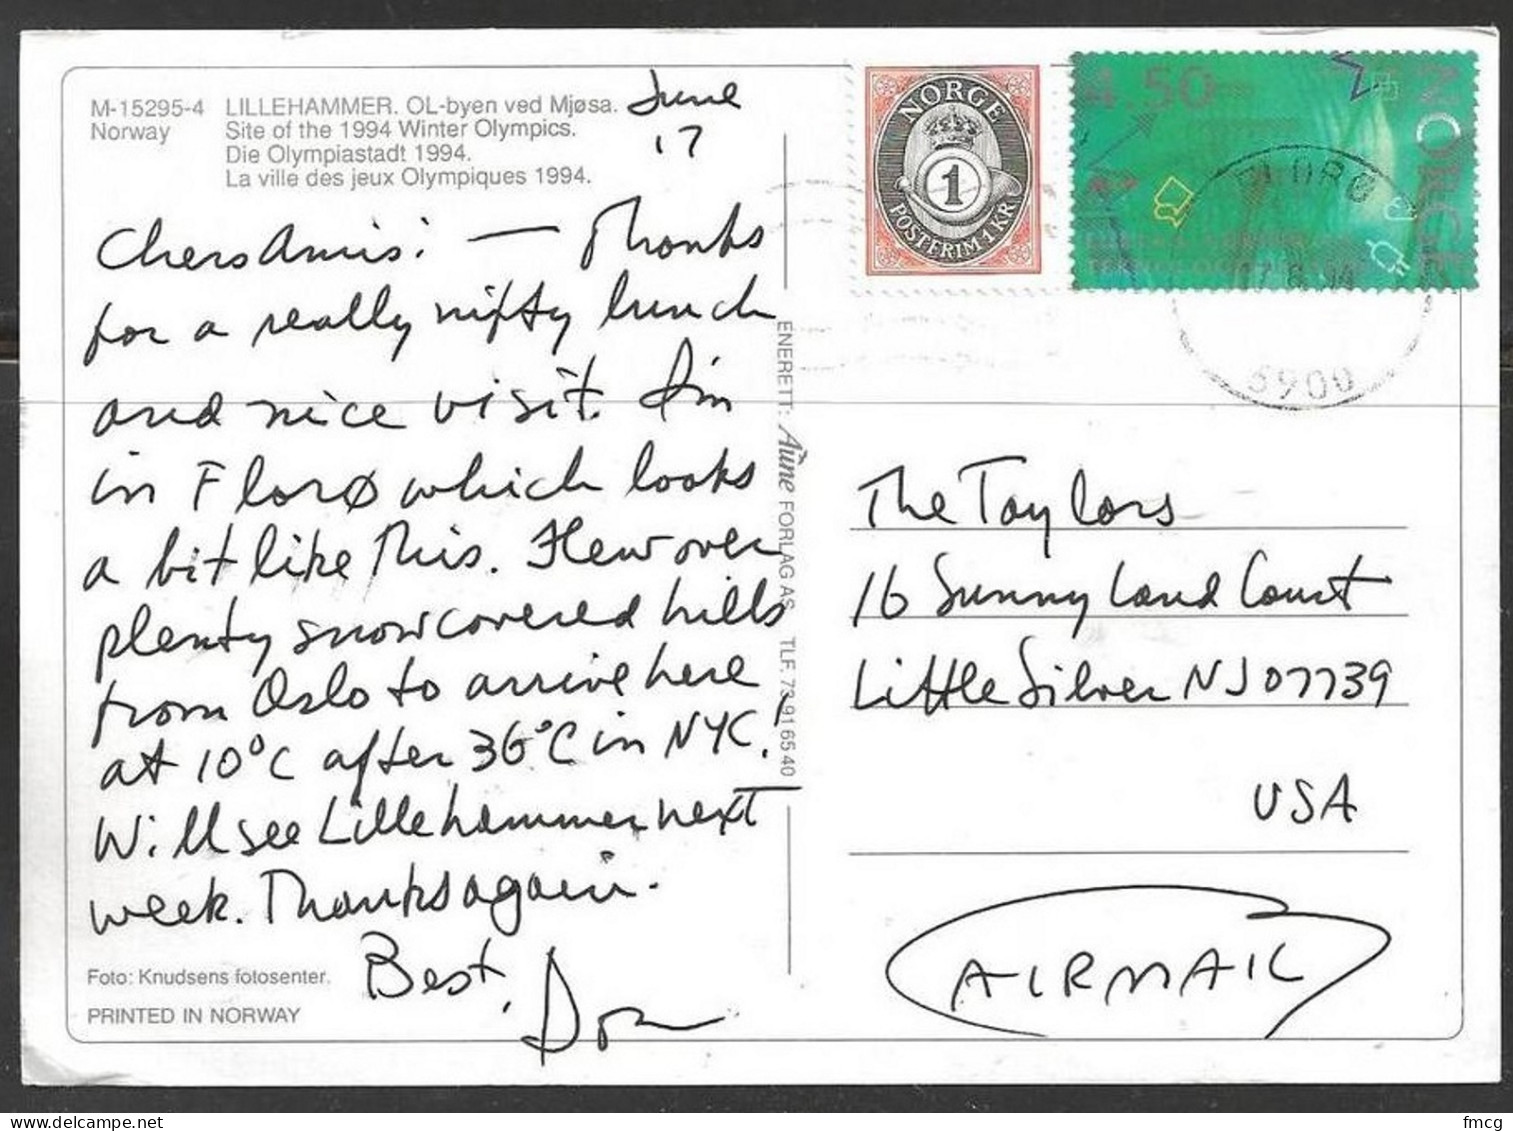 M-15295-4 LILLEHAMMER. OL-byen ved Mjøsa.
Norway Site of the 1994 Winter Olympics.
Die Olympiastadt 1994.
La ville des jeux Olympiques 1994.
June
17
Chers Amis: — Thanks
for a really nifty lunch
and nice visit. I'm
in Florø which looks
a bit like this. Flew over
plenty snowcovered hills
from Oslo to arrive here
at 10°C after 36°C in NYC!
Will see Lillehammer next
week. Thanks again.
Best,
Don
Foto: Knudsens fotosenter.
PRINTED IN NORWAY
ENERETT: Aune FORLAG AS. TLF. 73 91 65 40
NORGE
1
POSTFRIM. 1 KR
4.50
NORGE
FLORØ
17.6.94
6900
The Taylors
16 Sunny Land Court
Little Silver NJ 07739
USA
AIRMAIL
fmcg